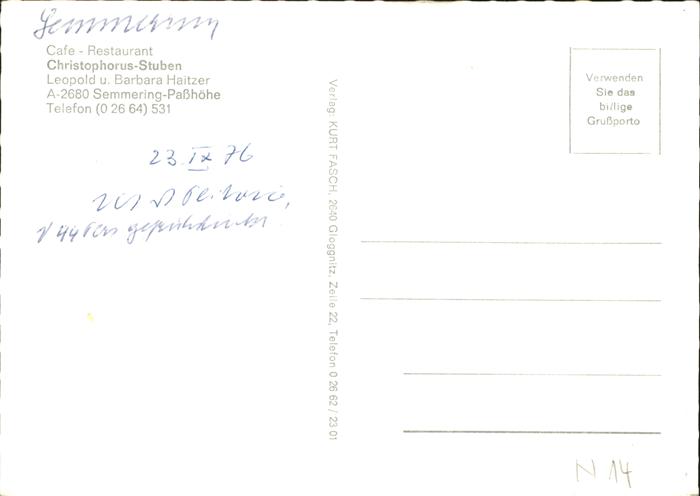 Semmering
Cafe - Restaurant
Christophorus-Stuben
Leopold u. Barbara Haitzer
A-2680 Semmering-Paßhöhe
Telefon (0 26 64) 531
23. IX 76
Verlag: KURT FASCH, 2640 Gloggnitz, Zeile 22, Telefon 0 26 62 / 23 01
Verwenden
Sie das
billige
Grußporto
N 14